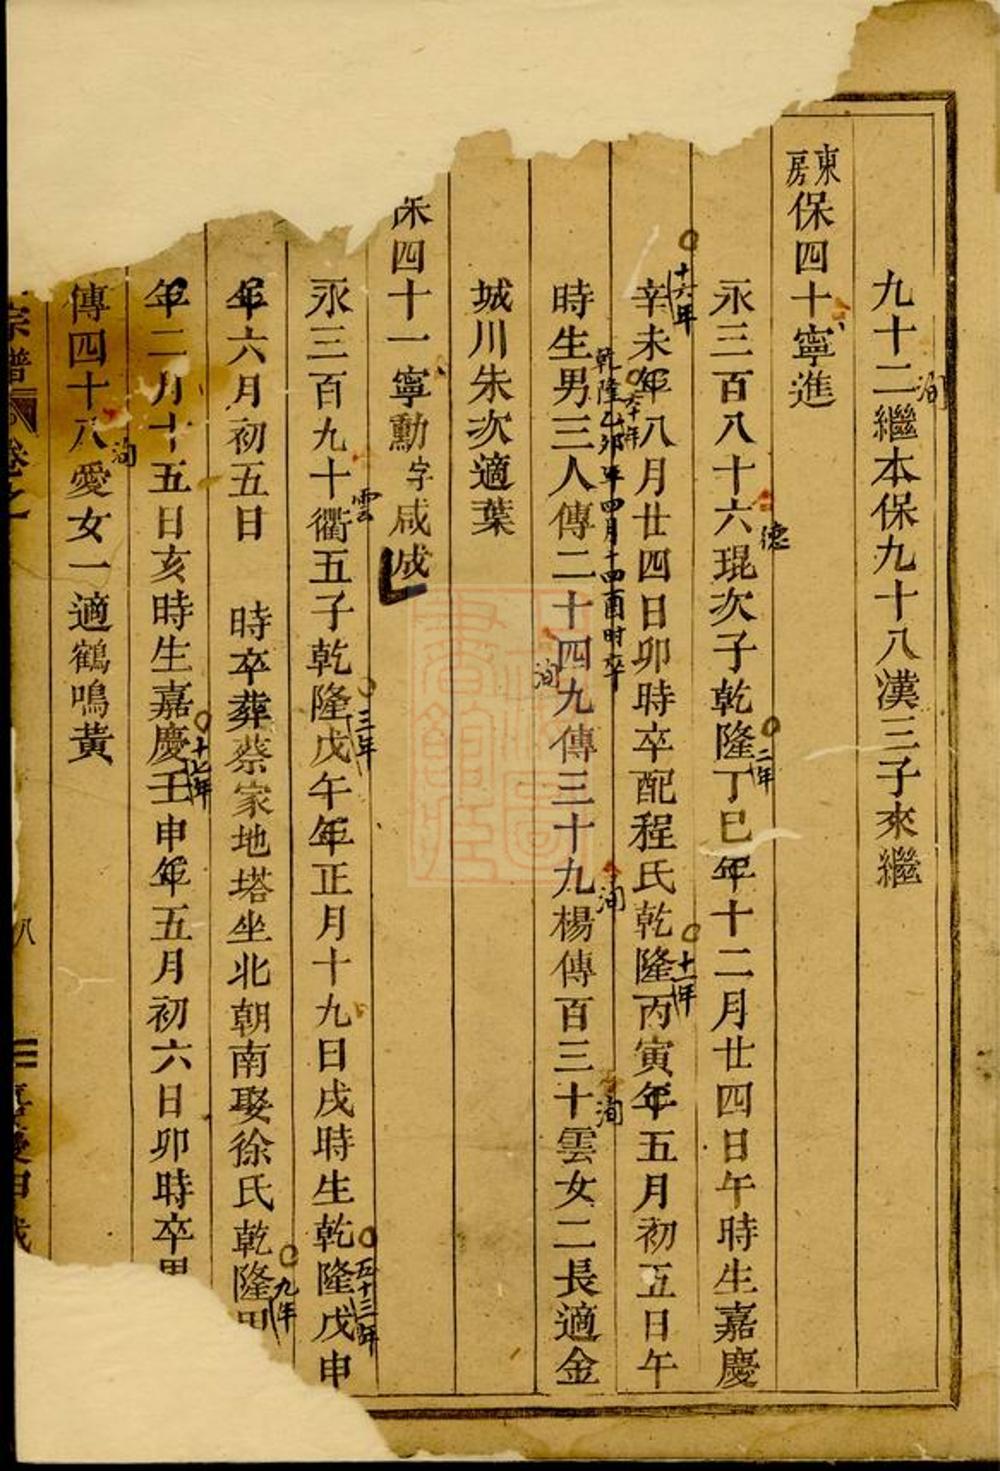 九十二繼本保九十八漢三子來繼
洵
東房保四十寧進
永三百八十六琨次子乾隆丁巳年十二月廿四日午時生嘉慶
德
二年
辛未年八月廿四日卯時卒配程氏乾隆丙寅年五月初五日午
十六年
六十年
十一年
乾隆乙卯年四月十四酉时卒
時生男三人傳二十四九傳三十九楊傳百三十雲女二長適金
洵
洵
洵
城川朱次適葉
保四十一寧勳字咸成
永三百九十衢五子乾隆戊午年正月十九日戌時生乾隆戊申
雲
三年
五十三年
年六月初五日 時卒葬蔡家地塔坐北朝南娶徐氏乾隆甲
九年
年二月十五日亥時生嘉慶壬申年五月初六日卯時卒男
十七年
傳四十八愛女一適鶴鳴黃
洵
宗譜 卷之
八